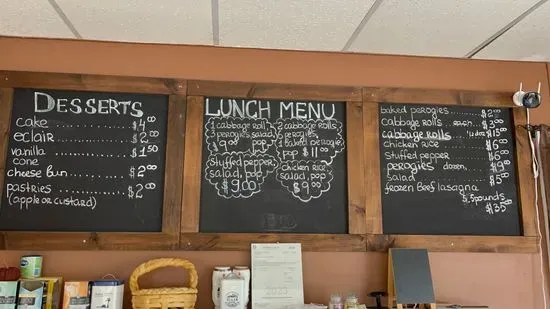 DESSERTS
cake $4.00
eclair $2.00
vanilla cone $1.50
cheese bun $2.00
pastries $2.00
(apple or custard)
LUNCH MENU
1 cabbage roll,
3 perogies, salad,
pop
2 cabbage rolls
1 baked perogie,
pop $11.00
stuffed pepper,
salad, pop
$9.00
chicken rice,
salad, pop
$9.00
baked perogies
cabbage rolls
cabbage rolls
chicken rice $6.00
stuffed pepper
perogies dozen
salad $5.00
frozen beef lasagna
5.5 pounds